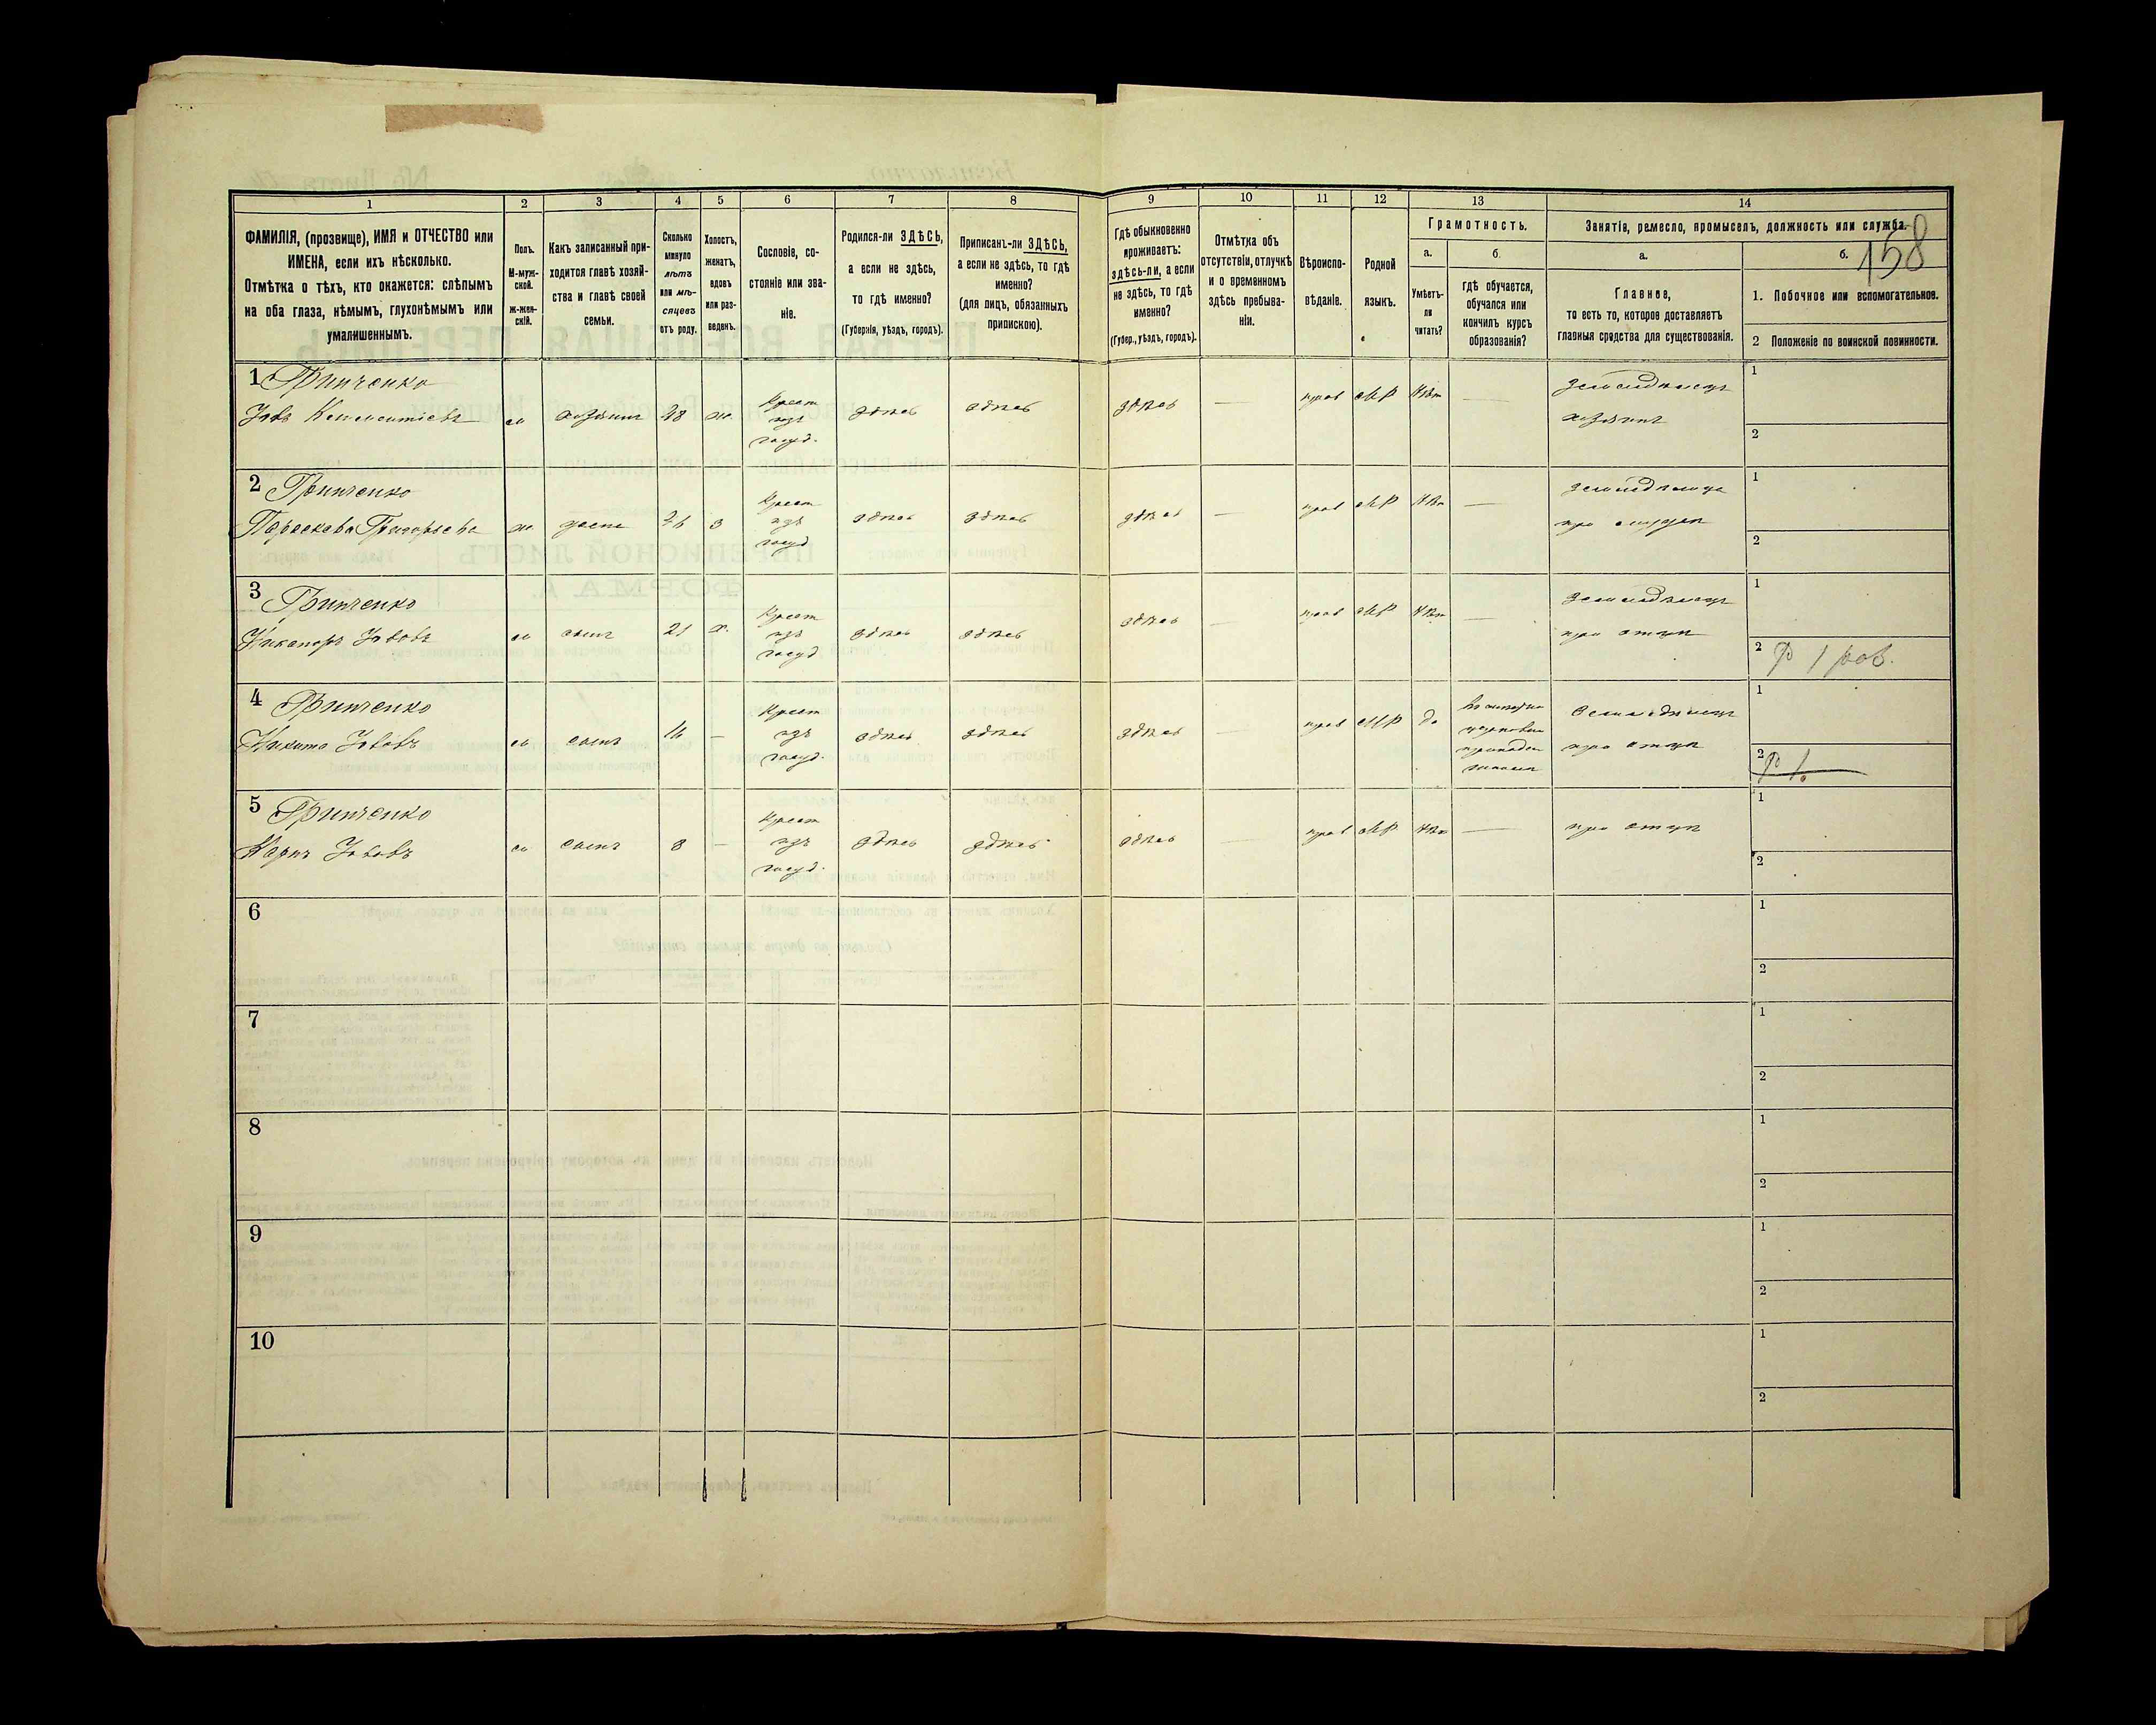 1
2
3
4
5
6
7
8
9
10
11
12
13
14
ФАМИЛІЯ, (прозвище), ИМЯ и ОТЧЕСТВО или
ИМЕНА, если ихъ нѣсколько.
Отмѣтка о тѣхъ, кто окажется: слѣпымъ
на оба глаза, нѣмымъ, глухонѣмымъ или
умалишеннымъ.
Полъ.
М-муж-
ской.
ж-жен-
скій.
Какъ записанный при-
ходится главѣ хозяй-
ства и главѣ своей
семьи.
Сколько
минуло
лѣтъ
или мѣ-
сяцевъ
отъ роду.
Холостъ,
женатъ,
вдовъ
или раз-
веденъ.
Сословіе, со-
стояніе или зва-
ніе.
Родился-ли ЗДѢСЬ,
а если не здѣсь,
то гдѣ именно?
(Губернія, уѣздъ, городъ).
Приписанъ-ли ЗДѢСЬ,
а если не здѣсь, то гдѣ
именно?
(для лицъ, обязанныхъ
припискою).
Гдѣ обыкновенно
проживаетъ:
здѣсь-ли, а если
не здѣсь, то гдѣ
именно?
(Губер., уѣздъ, городъ).
Отмѣтка объ
отсутствіи, отлучкѣ
и о временномъ
здѣсь пребыва-
ніи.
Вѣроиспо-
вѣданіе.
Родной
языкъ.
Грамотность.
а.
Умѣетъ-
ли
читать?
б.
гдѣ обучается,
обучался или
кончилъ курсъ
образованія?
Занятія, ремесло, промыселъ, должность или служба.
158
а.
Главное,
то есть то, которое доставляетъ
главныя средства для существованія.
б.
1. Побочное или вспомогательное.
2 Положеніе по воинской повинности.
1 Гринченко
Іовъ Климентіевъ м хозяинъ 48 ж. Крест
изъ
госуд. здѣсь здѣсь здѣсь прав МР Нѣт — земледѣлецъ
хозяинъ
1
2
2 Гринченко
Параскева Григорьева ж жена 46 з Крест
изъ
госуд здѣсь здѣсь здѣсь — прав МР Нѣт —
при мужѣ
1
2
3 Гринченко
Никаноръ Іововъ м сынъ 21 х. Крест
изъ
госуд здѣсь здѣсь здѣсь — прав МР Нѣт — земледѣлецъ
при отцѣ
1
2 Р 1 раз.
4 Гринченко
Никита Іововъ м сынъ 16 — Крест
изъ
госуд. здѣсь здѣсь здѣсь — прав МР да
церковно
приходск
земледѣлецъ
при отцѣ
1
2 Р 1.
5 Гринченко
Карпъ Іововъ м сынъ 8 — Крест
изъ
госуд. здѣсь здѣсь здѣсь — прав МР Нѣт — при отцѣ
1
2
6
1
2
7
1
2
8
1
2
9
1
2
10
1
2